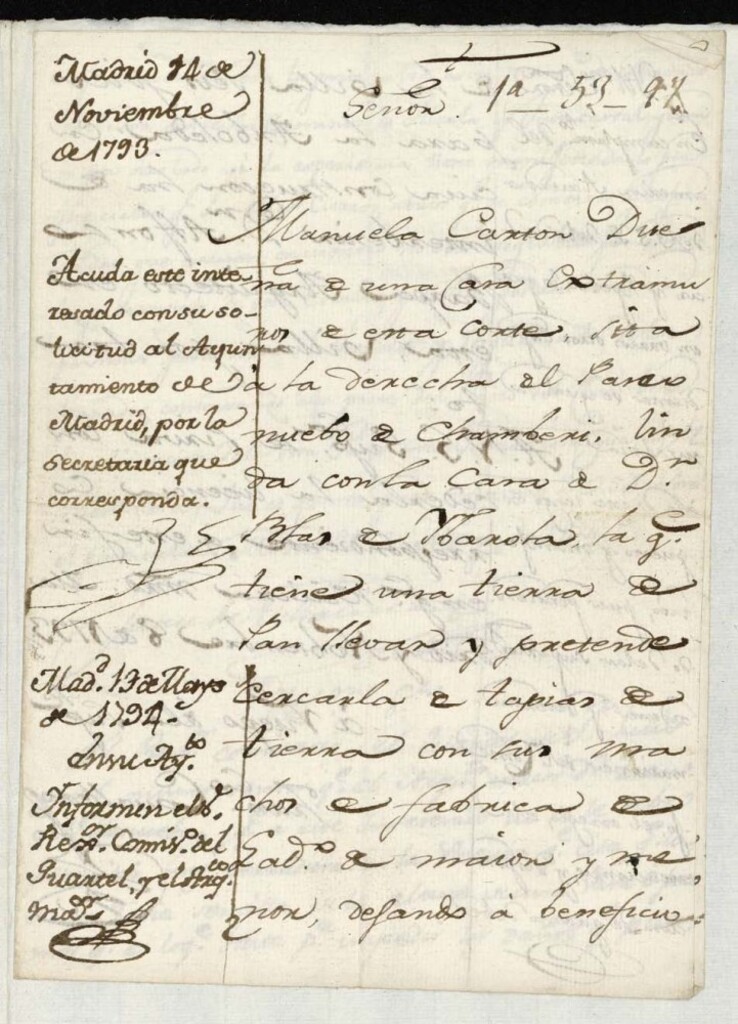 Madrid 14 de
Noviembre
de 1793.
Acuda este inte
resado con su so-
licitud al Ayun
tamiento de
Madrid, por la
secretaria que
corresponda.
Mad.d 13 de Mayo
de 1794.
En su Ay.to
Informen el S.r
Rex.or Comis.o del
Quartel, y el Arq.to
m.or
Señor. 1a - 53 - 97
Manuela Carton Due
ña de una Casa extramu
ros de esta corte, sita
à la derecha del Paseo
nuebo de Chamberi, lin
da con la Casa de D.n
Blas de la q.e
tiene una tierra de
Pan llevar y pretende
Cercarla de tapias de
tierra con sus ma
chos de fabrica de
Lad.o de maior y me
nor, dejando à beneficio